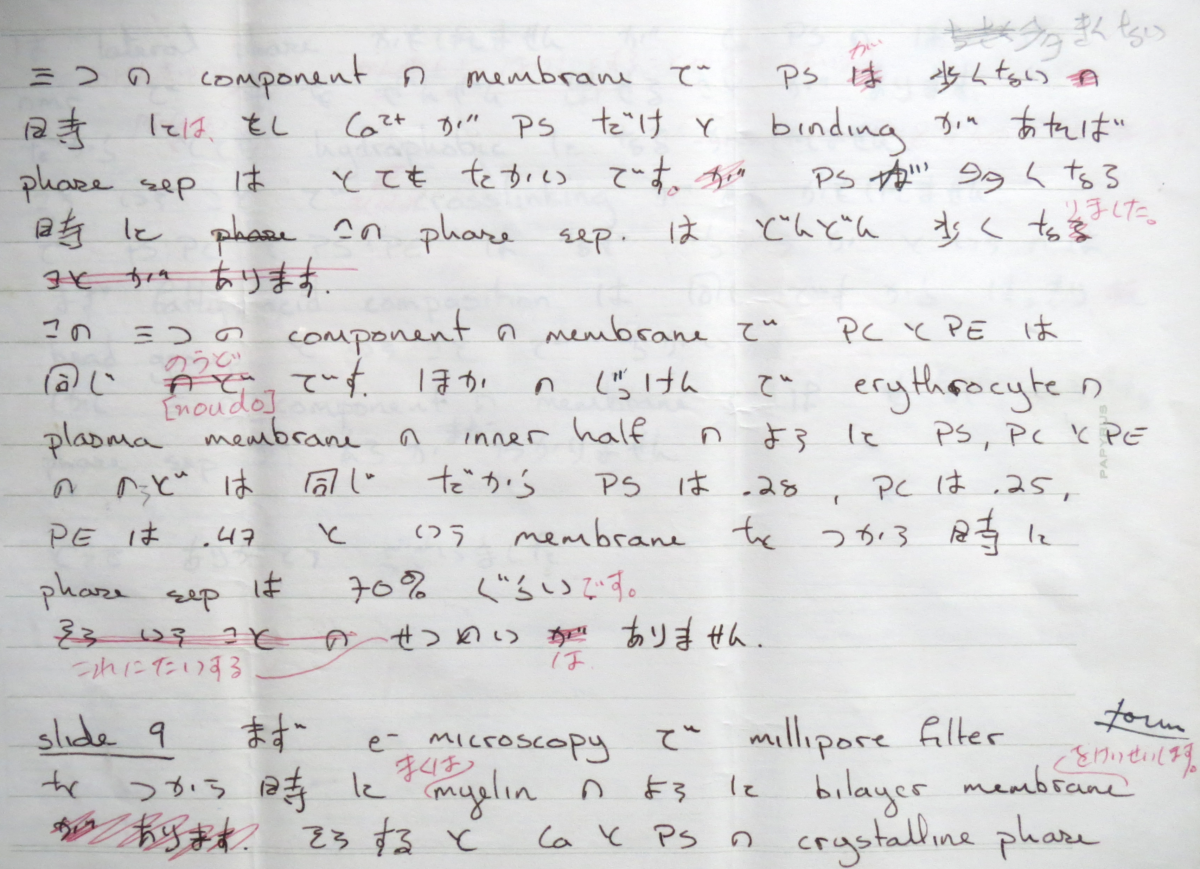 多くない
が
三つの component の membrane で PS は 少くない の
時 には もし Ca2+ が PS だけと binding が あれば
phase sep は とても たかい です。が PS が 多くなる
時に phase この phase sep. は どんどん 少くなる りました。
ことが あります.
この 三つの component の membrane で PC と PE は
のうど
同じ のど です. ほかの じっけん で erythrocyte の
[noudo]
plasma membrane の inner half の ように PS, PC と PE
の のうど は 同じ だから PS は .28 , PC は .25,
PE は .47 と いう membrane を つかう 時に
phase sep は 70% ぐらい です。
そういうこと の せつめい が ありません.
これにたいする は
form
slide 9 まず e- microscopy で millipore filter
まくは をけいせいします。
を つかう 時に myelin の ように bilayer membrane
が あります. そうすると Ca と PS の crystalline phase
PAPYRUS